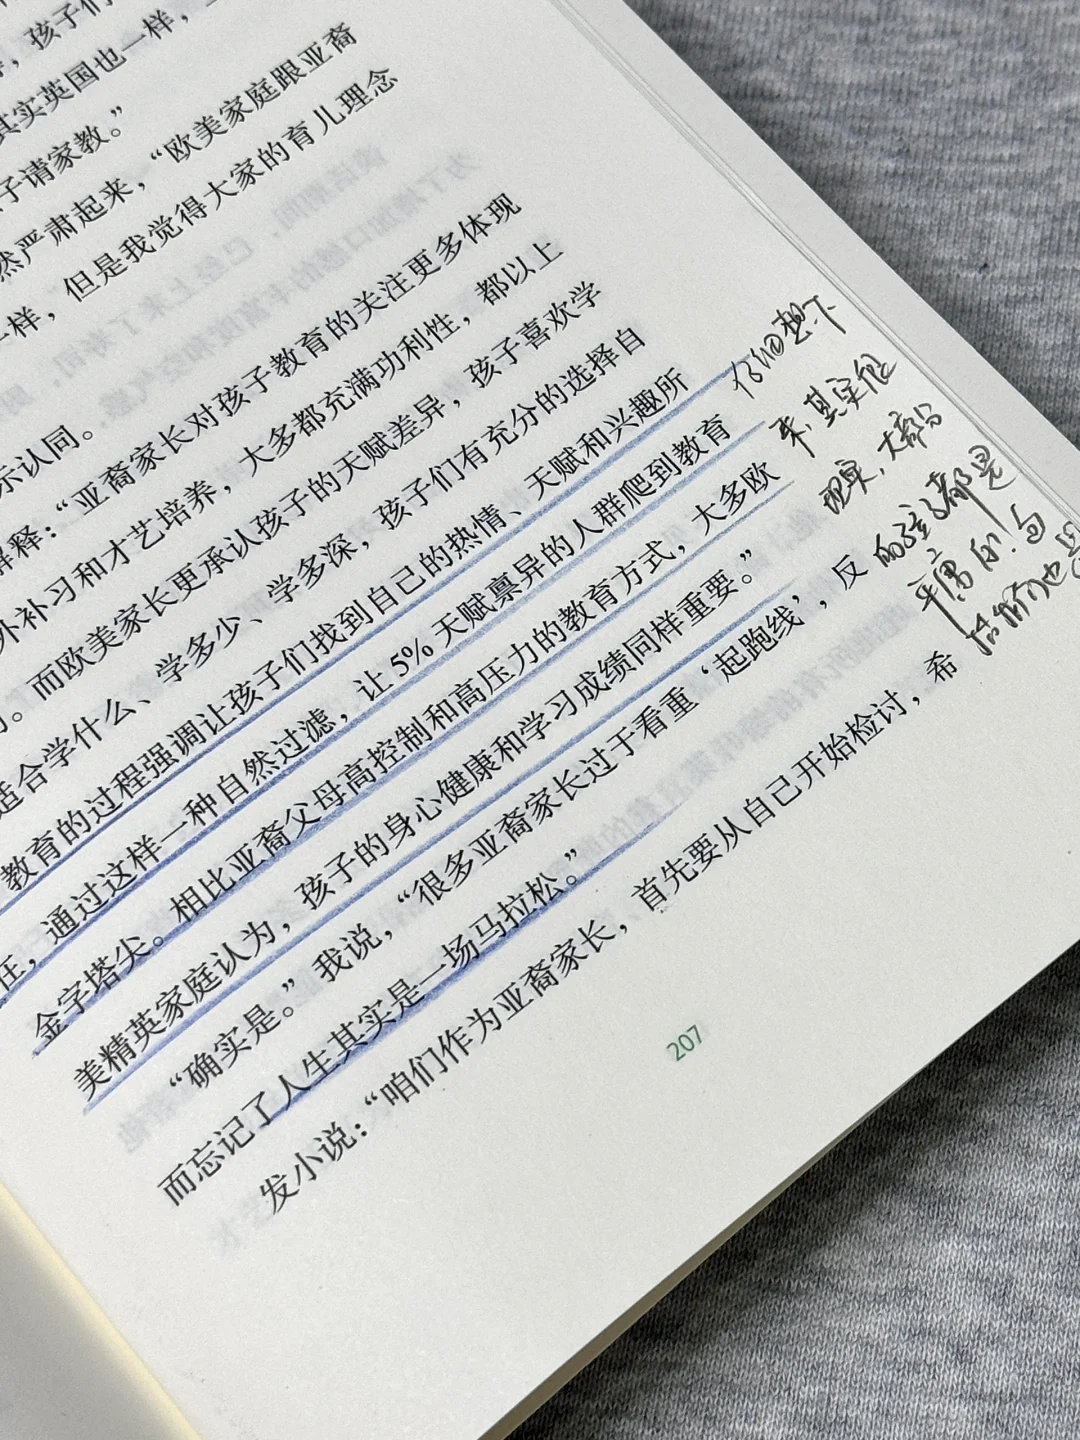 ，孩子们
其实英国也一样，
子请家教。”
然严肃起来，“欧美家庭跟亚裔
一样，但是我觉得大家的育儿理念
示认同。
解释：“亚裔家长对孩子教育的关注更多体现
外补习和才艺培养，大多都充满功利性，都以上
。而欧美家长更承认孩子的天赋差异，孩子喜欢学
适合学什么、学多少、学多深，孩子们有充分的选择自
教育的过程强调让孩子们找到自己的热情、天赋和兴趣所
在，通过这样一种自然过滤，让5%天赋禀异的人群爬到教育
金字塔尖。相比亚裔父母高控制和高压力的教育方式，大多欧
美精英家庭认为，孩子的身心健康和学习成绩同样重要。”
“确实是。”我说，“很多亚裔家长过于看重‘起跑线’，反
而忘记了人生其实是一场马拉松。”
发小说：“咱们作为亚裔家长，首先要从自己开始检讨，希
207
仔细想下
来，其实很
现实，大部分
的孩子都是
平庸的！